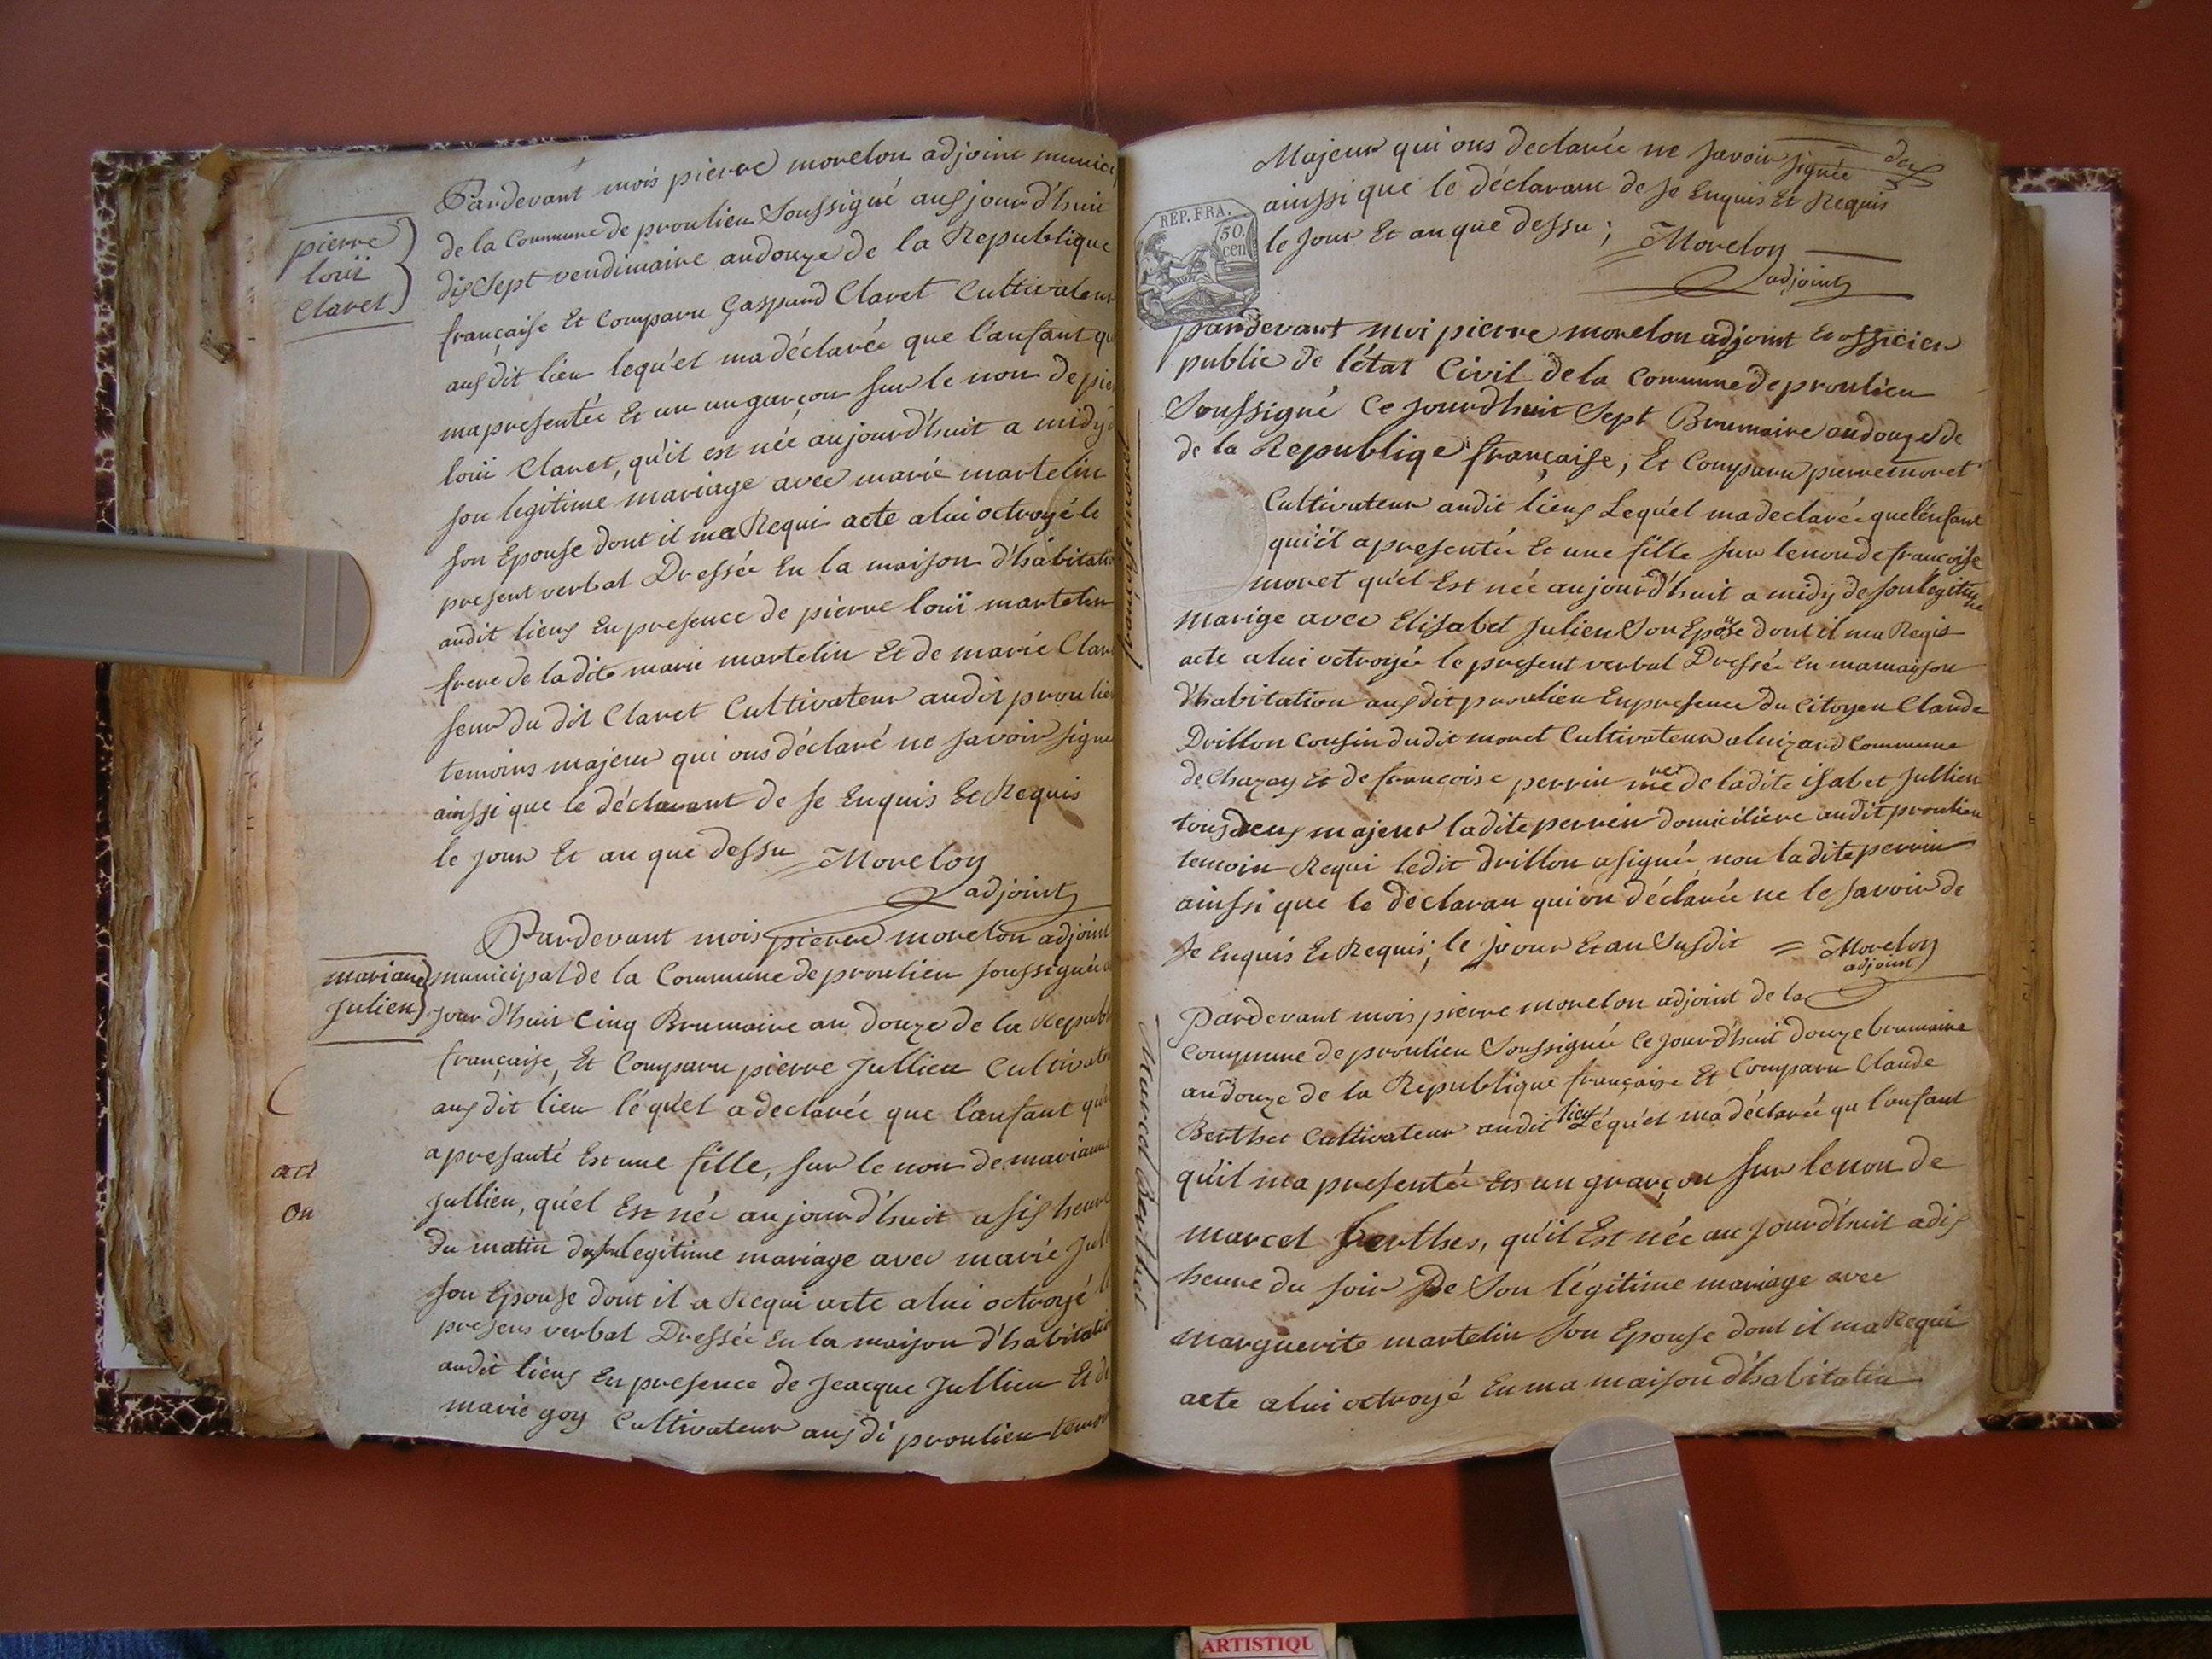 pierre
louï
Claret
Pardevant mois pierre morelon adjoint munici
de la Commune de proulieu Soussigné aus jourd'huit
dis Sept vendimaire an douze de la Republique
française Et Comparu Gaspard Claret Cultivateur
aus dit lieu lequ'el ma déclarée que l'anfant qu
ma presentée Et un un garçon sur le non de pie
louï Claret, qu'il est née aujourd'huit a midy
son legitime mariage avec marie martelin
son Epouse dont il ma Requi acte a lui octroyé le
present verbal Dressée En la maison d'habitati
audit lieus En presence de pierre louï martelin
frere de la dite marie martelin Et de marie Clar
seur du dit Claret Cultivateur audit proulie
temoins majeur qui ons déclaré ne savoir signe
ainssi que le déclarent de se Enquis Et Requis
le jour Et an que dessu Morelon
adjoint
Pardevant mois pierre morelon adjoint
mariane
Julien
municipal de la Commune de proulieu soussignée
jour d'huit Cinq Brumaire an douze de la Republ
française, Et Comparu pierre Jullien Cultivate
aus dit lieu léqu'el a declarée que l'anfant qu'i
a presanté Est une fille, sur le non de mariane
Jullien, qu'el Est née aujourd'huit a sis heure
du matin de son legitime mariage avec marie Jull
son Epouse dont il a Requi acte a lui octroyé l
presens verbal Dressée En la maison d'habitatio
audit lieus En presence de Jeacque Jullien Et de
marie goy Cultivateur aus di proulieu temoi
act
on
Majeur qui ons declarée ne savoir signée
ainssi que le déclarant de se Enquis Et Requis
le jour Et an que dessu ; Morelon
adjoint
RÉP. FRA.
50.
cen
françoise moret
pardevant moi pierre morelon adjoint Et officier
public de l'état Civil de la Commune de proulieu
Soussigné Ce jourd'huit Sept Brumaire an douze de
de la Republiqe française, Et Comparu pierre moret
Cultivateur audit lieus Lequ'el ma declarée que l'enfant
qui'il a presentée Et une fille sur le non de francoise
moret qu'el Est née aujourd'huit a midy de son legitime
marige avec Elisabet Julien Son Epose dont il ma Regis
acte a lui octroyée le present verbal Dressée En ma maison
d'habitation aus dit proulieu En presence du Citoyen Claude
Drillon Cousin dudit moret Cultivateur a luizard Commune
de Chazay Et de francoise perrin mere de ladite isabet Jullien
tous deus majeur ladite perrein domiciliere audit proulieu
temoin Requi ledit Drillon a signée non ladite perrin
ainssi que le declaran qui on déclarée ne le savoir de
se Enquis Et Requis, le joour Et an Susdit = Morelon
adjoint
Marcel Berthet
Pardevant mois pierre morelon adjoint de la
Commune de proulieu Soussignée Ce jourd'huit douze brumaire
an douze de la Republique française Et Comparu Claude
Berthet Cultivateur audit lieus Léqu'el ma déclarée qu l'anfant
qu'il ma presentée Ets un grarçon sur le non de
marcel berthes, qu'il Est née au jourd'huit a dis
heure du soir De Son légitime mariage avec
marguerite martelin Son Epouse dont il ma Requi
acte a lui octroyé En ma maison d'habitation
ARTISTIQU